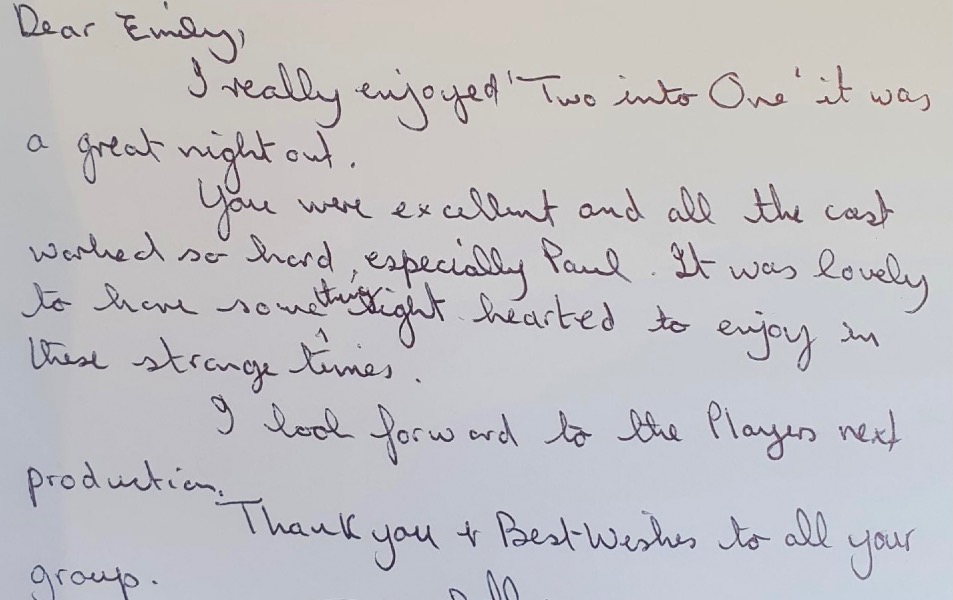 Dear Emily,
I really enjoyed 'Two into One' it was
a great night out.
You were excellent and all the cast
worked so hard, especially Paul. It was lovely
to have something light hearted to enjoy in
these strange times.
I look forward to the Players next
production.
Thank you + Best Wishes to all your
group.